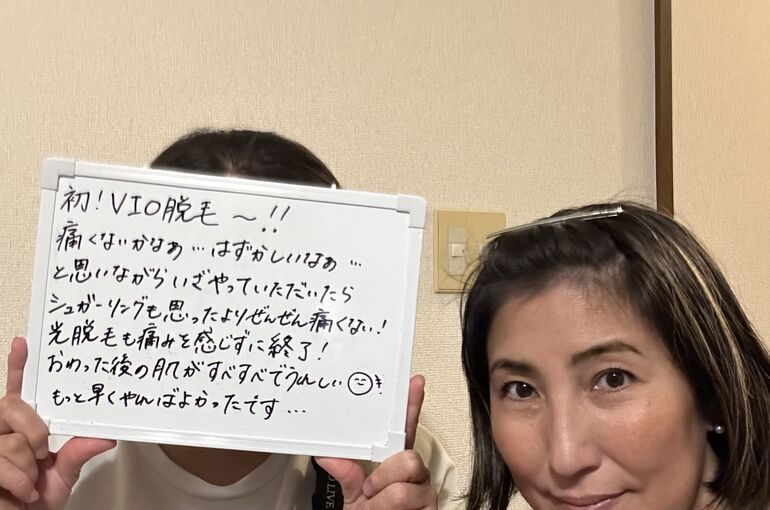 初！VIO脱毛〜！！
痛くないかなぁ…はずかしいなぁ…
と思いながらいざやっていただいたら
シュガーリングも思ったよりぜんぜん痛くない！
光脱毛も痛みを感じずに終了！
おわった後の肌がすべすべでうれしい
もっと早くやればよかったです…
LIVE